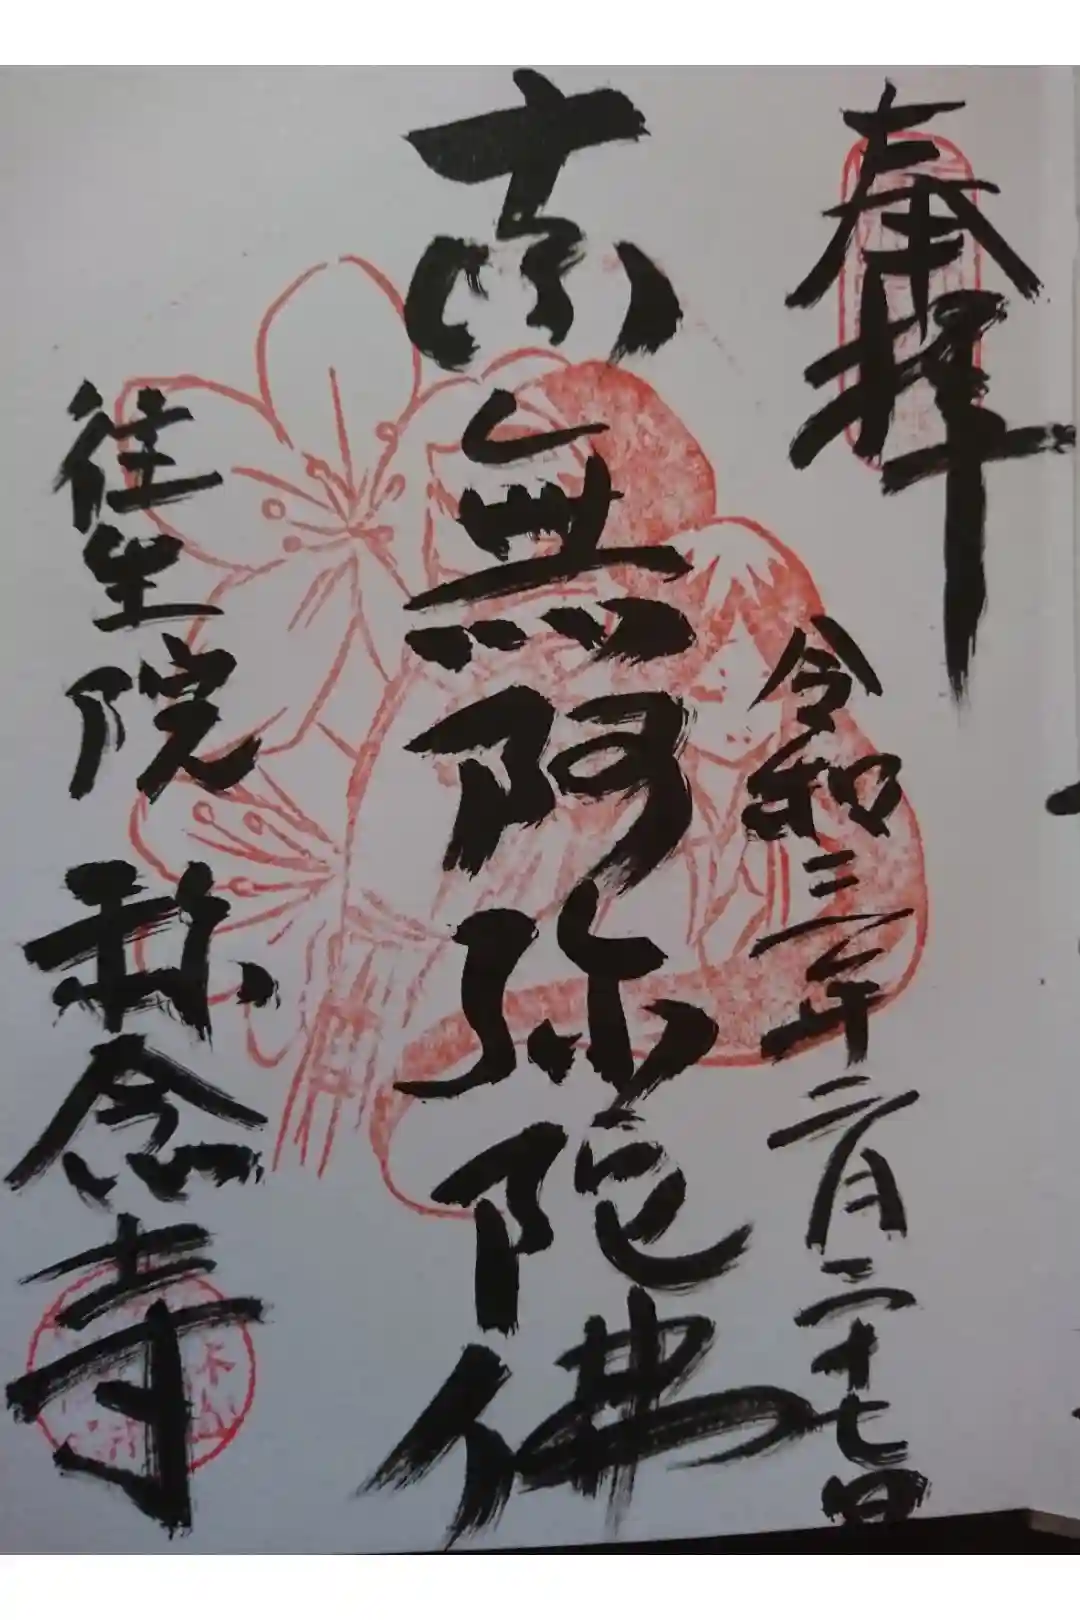 奉拝
令和三年二月二十七日
南無阿弥陀佛
往生院 称念寺